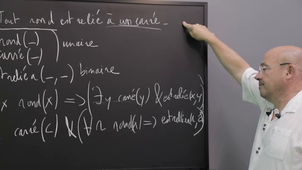 Tout rond est relié à un carré.
rond(_) unaire
carré(_)
estrelié(_,_) binaire
x rond(x) => (∃y carré(y) & estrelié(x,y)
carré(c) & (∀x rond(x) => estrelié(x,c)